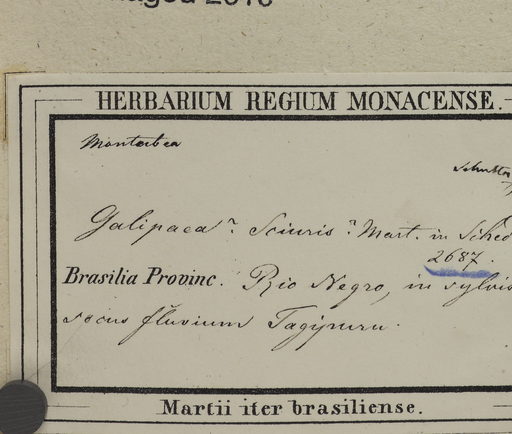 2018
HERBARIUM REGIUM MONACENSE.
Montabea
Galipaea? Sciuris? Mart. in Sched
2687.
Brasilia Provinc. Rio Negro, in sylvis
secus fluvium Tagipuru.
Martii iter brasiliense.